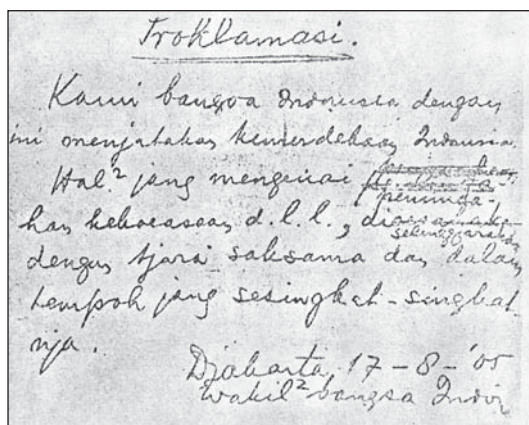 Proklamasi.
Kami bangsa Indonesia dengan
ini menjatakan kemerdekaan Indonesia.
Hal² jang mengenai
peminda-
han kekoeasaan d.l.l., di
selenggarakan
dengan tjara saksama dan dalam
tempoh jang sesingkat-singkat
nja.
Djakarta, 17 - 8 - '05
Wakil² bangsa Indon